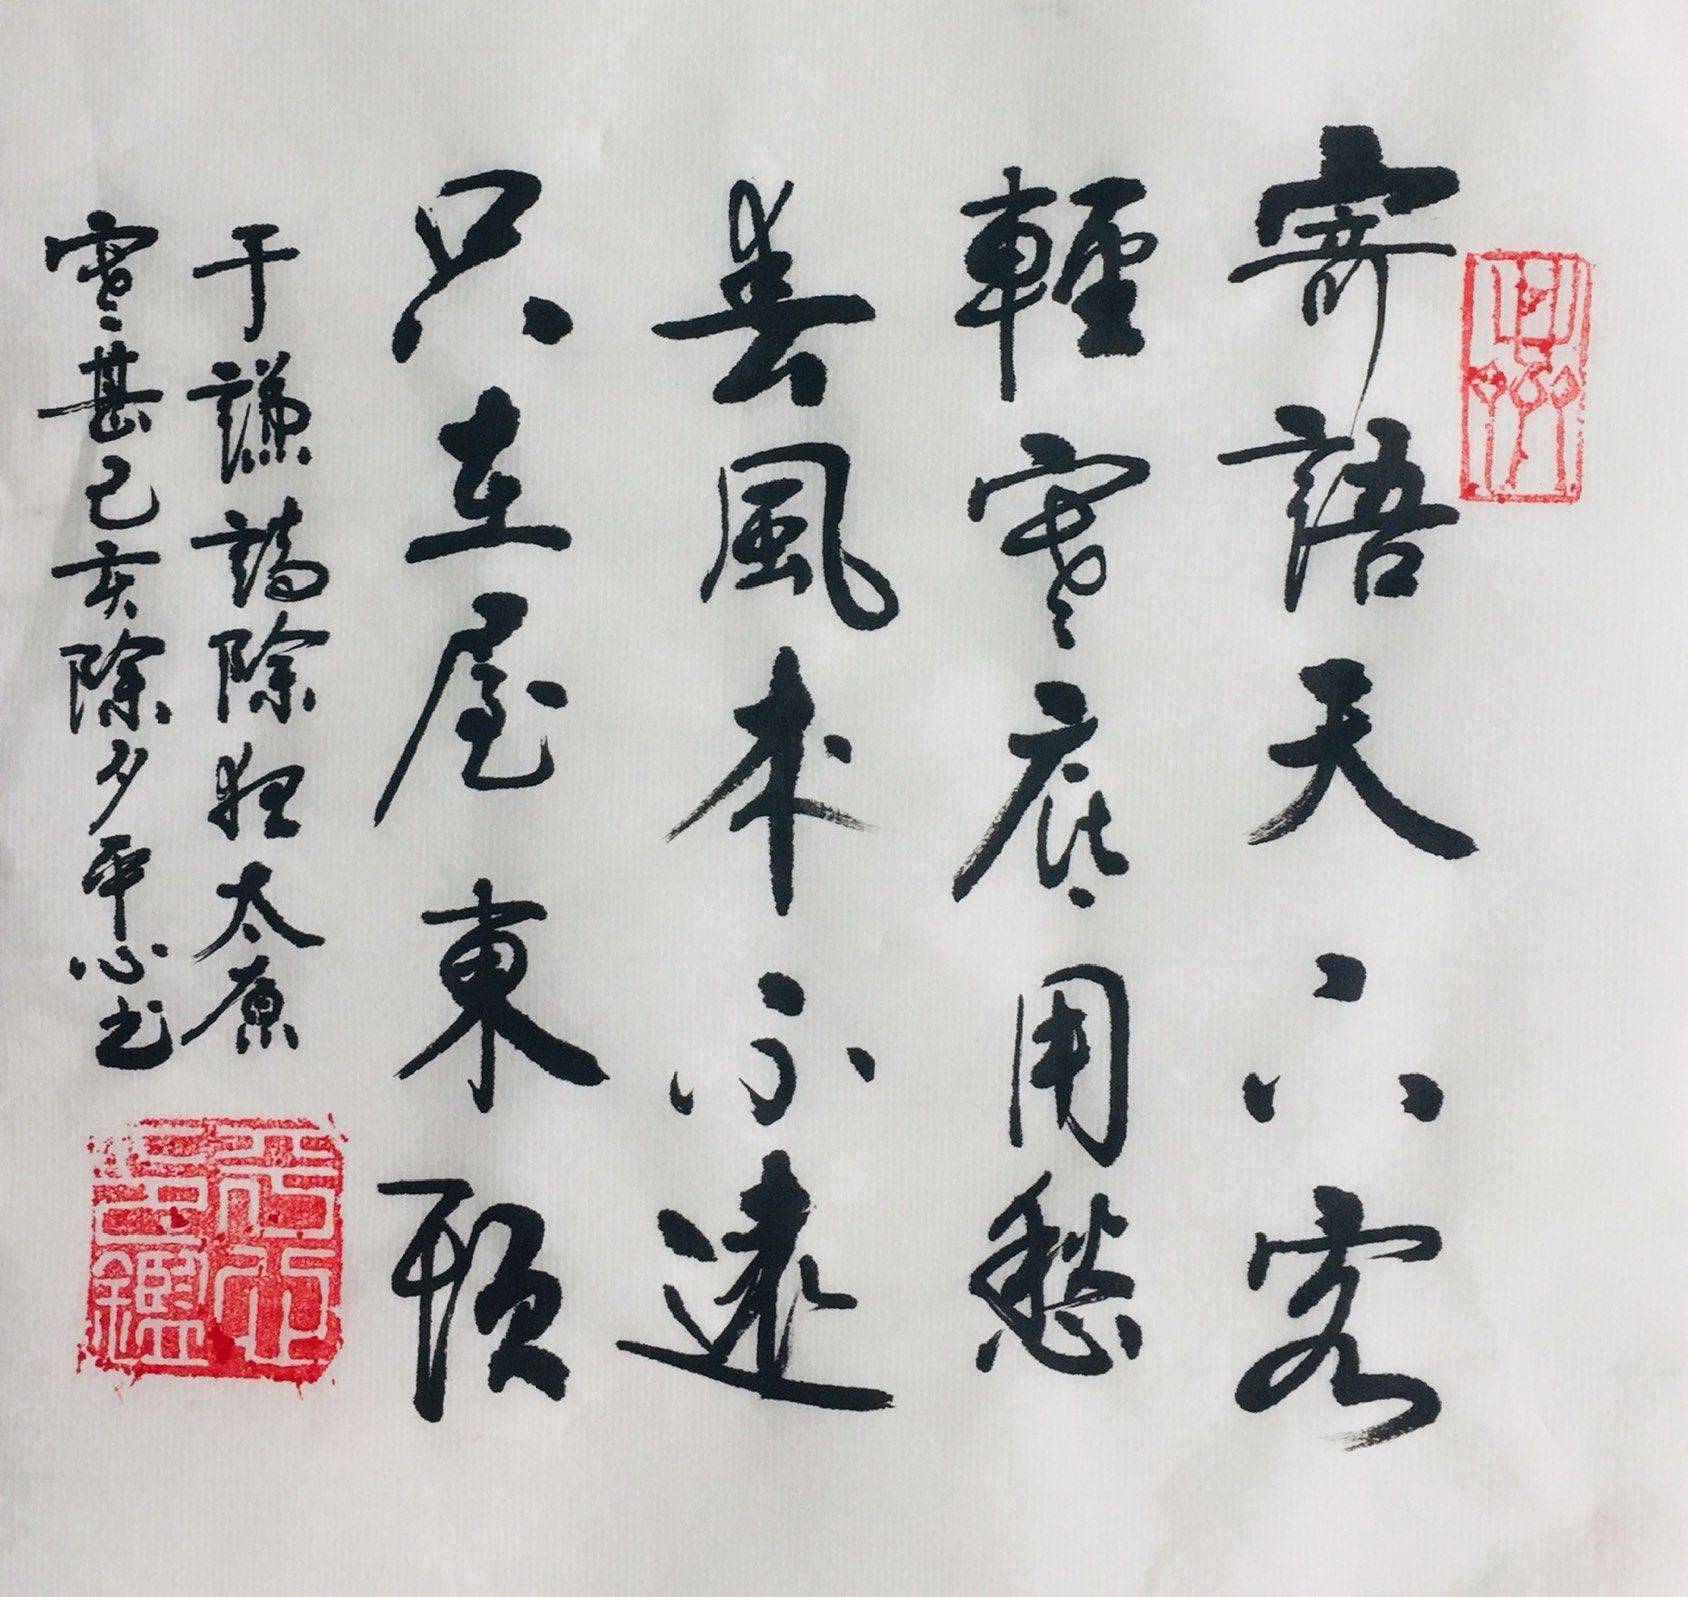 寄語天下客
輕寒底用愁
春風來不遠
只在屋東頭
于謙詩除夜太原
寒甚己亥除夕平心书